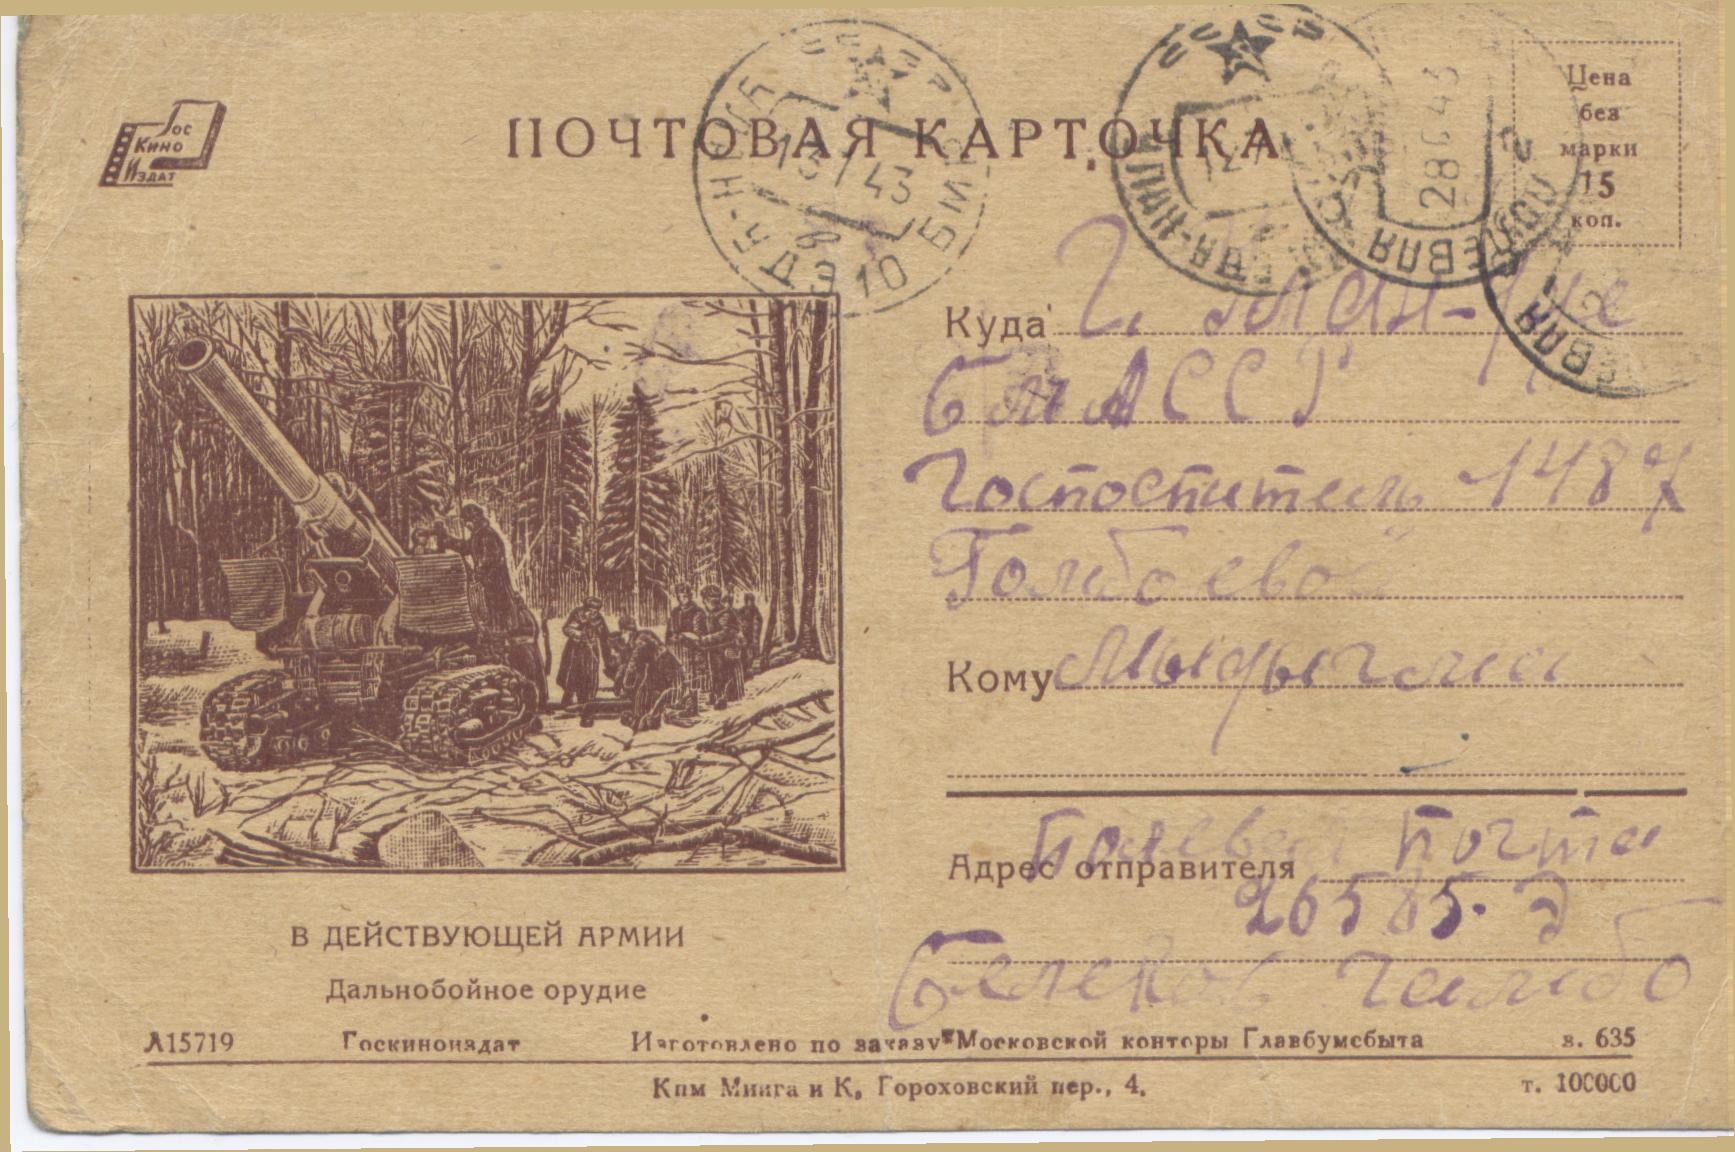 Гос
Кино
Издат
ПОЧТОВАЯ КАРТОЧКА
Цена
без
марки
15
коп.
Куда г. Улан-Удэ
БМАССР
Госпоспиталь 1487
Гомбоевой
Кому
Адрес отправителя Полевая почта
26585. Э
Гомбо
В ДЕЙСТВУЮЩЕЙ АРМИИ
Дальнобойное орудие
А15719 Госкиноиздат Изготовлено по заказу Московской конторы Главбумсбыта з. 635
Кпм Минга и К, Гороховский пер., 4. т. 100000